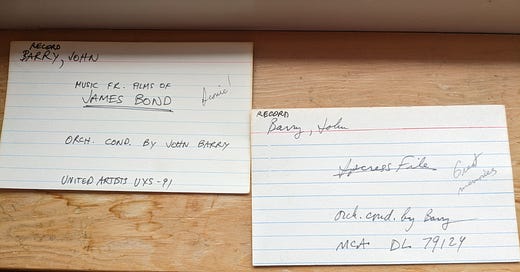 RECORD
BARRY, JOHN
MUSIC FR. FILMS OF
JAMES BOND
ORCH. COND. BY JOHN BARRY
UNITED ARTISTS UXS-91
RECORD
Barry, John
Ipcress File
Great
memories
Orch. cond. by Barry
MCA DL 79124